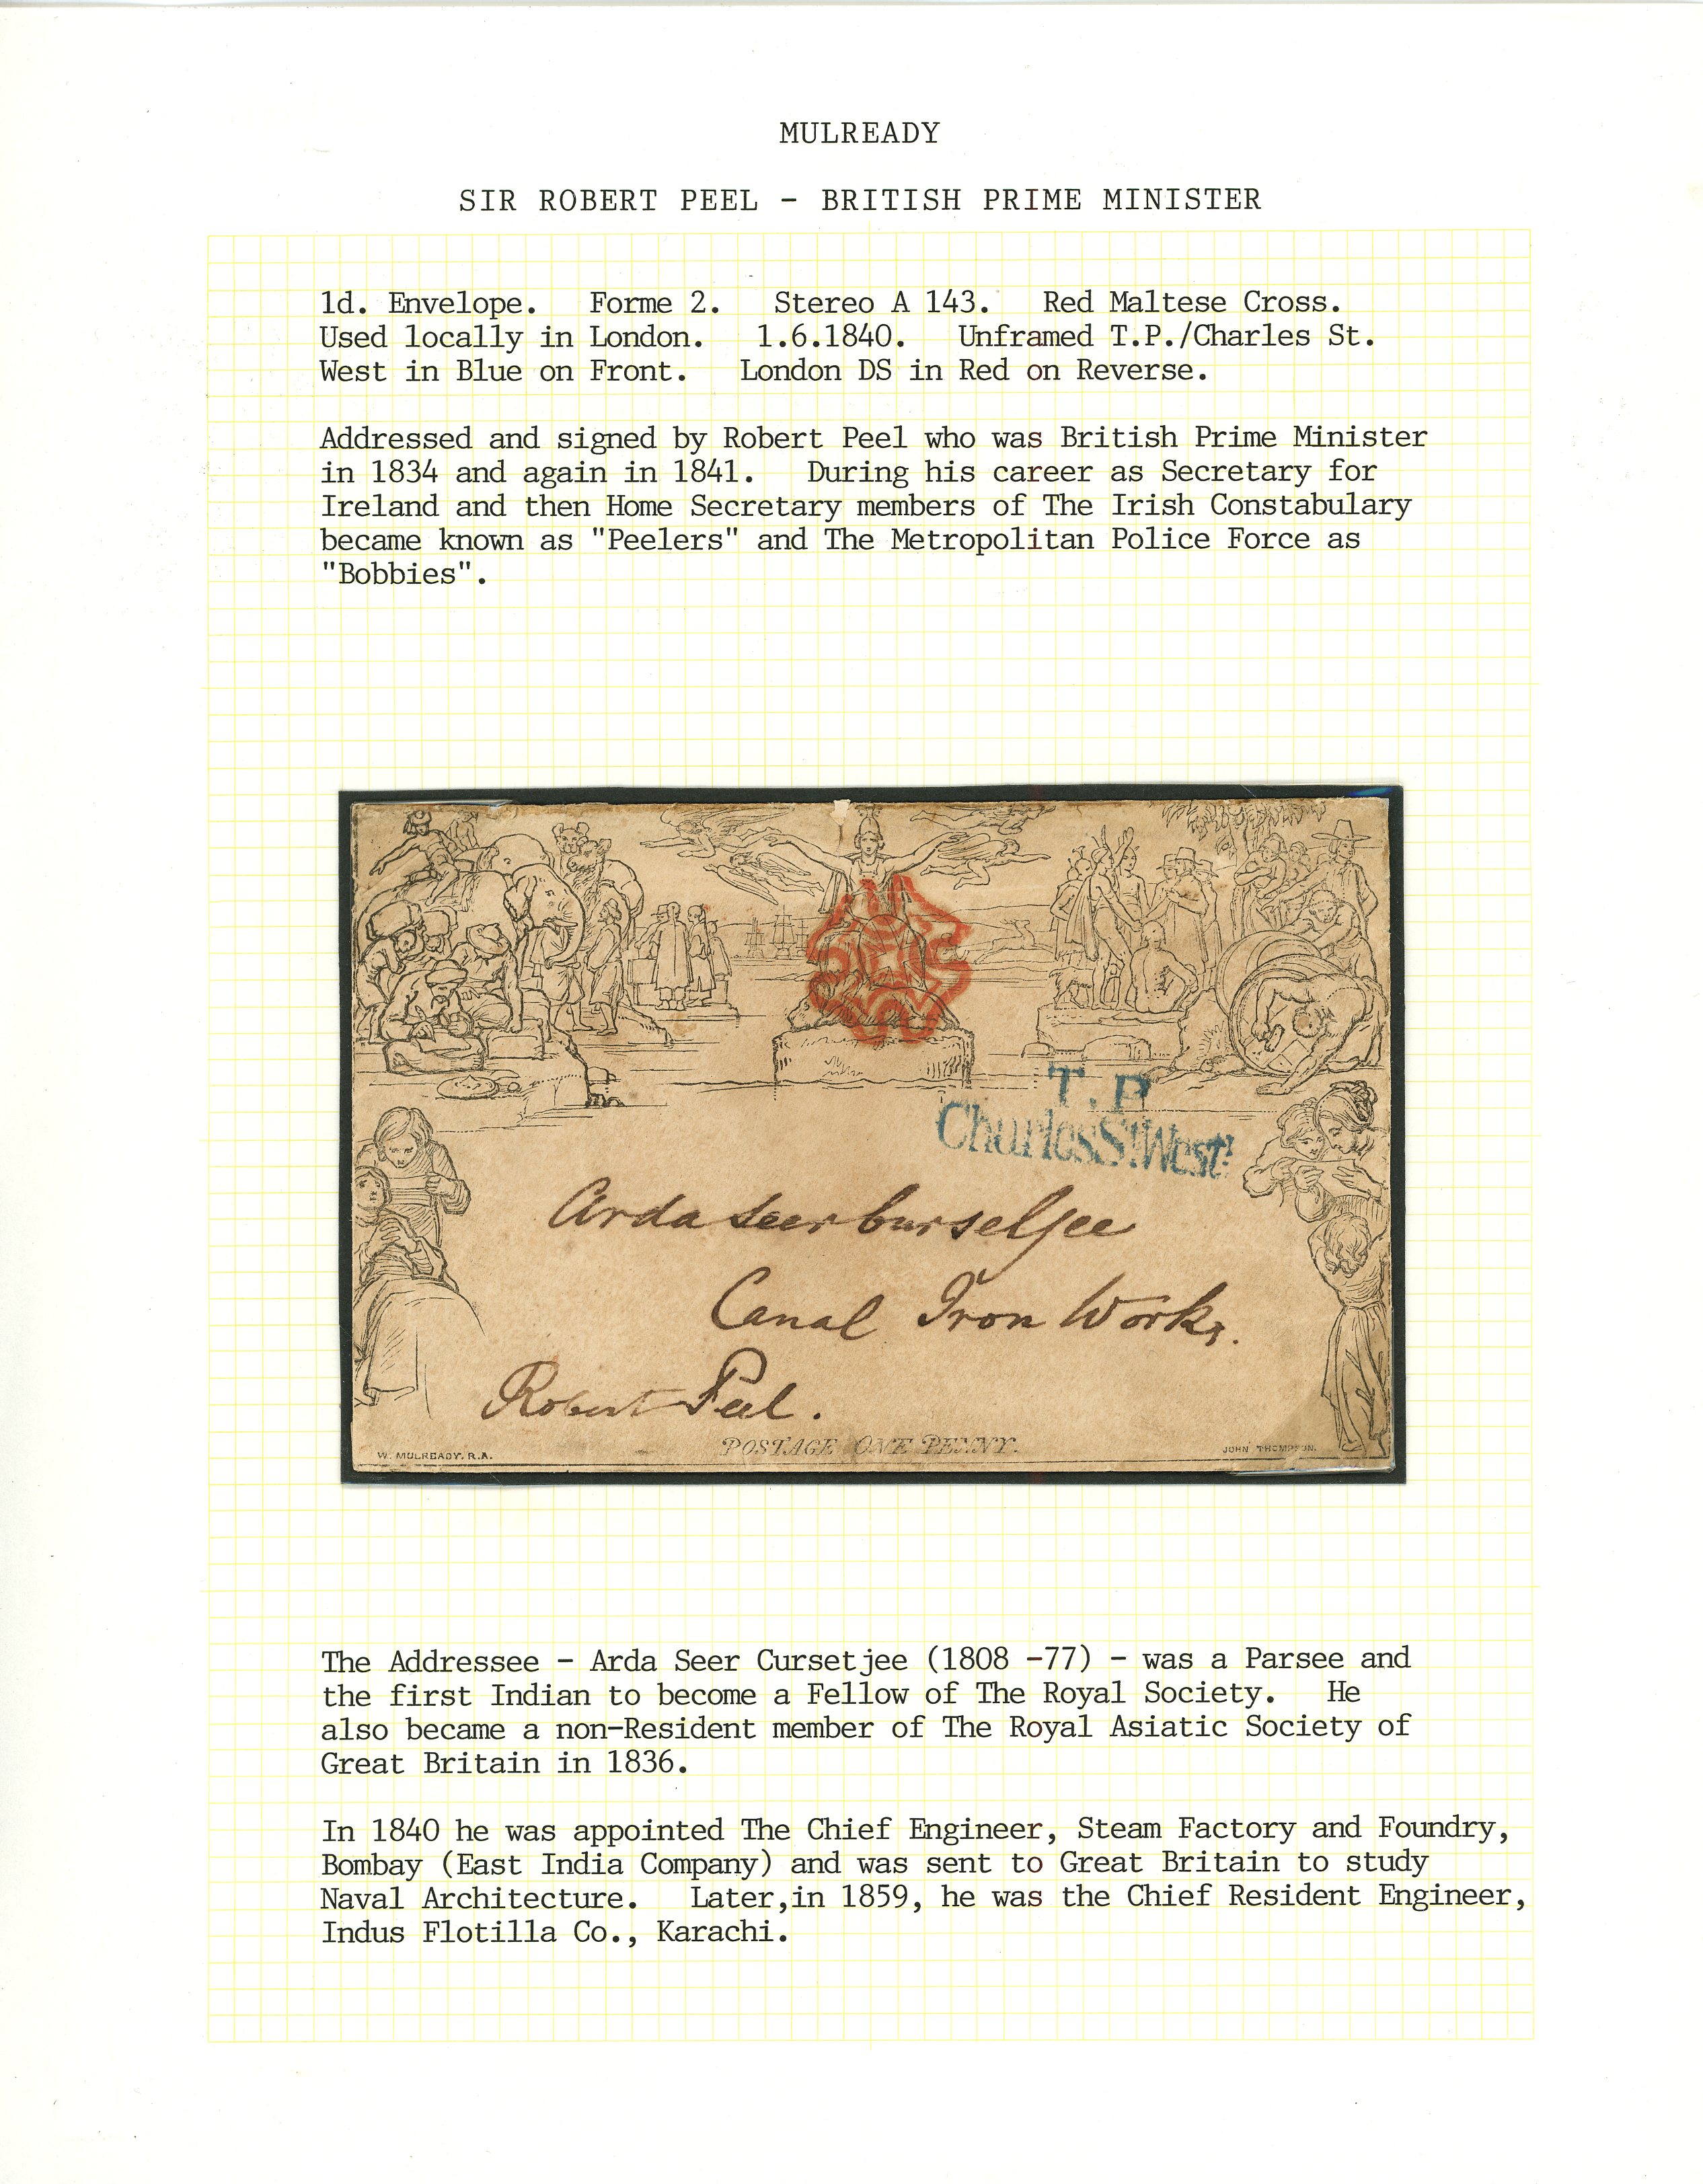 MULREADY
SIR ROBERT PEEL - BRITISH PRIME MINISTER
1d. Envelope. Forme 2. Stereo A 143. Red Maltese Cross.
Used locally in London. 1.6.1840. Unframed T.P./Charles St.
West in Blue on Front. London DS in Red on Reverse.
Addressed and signed by Robert Peel who was British Prime Minister
in 1834 and again in 1841. During his career as Secretary for
Ireland and then Home Secretary members of The Irish Constabulary
became known as "Peelers" and The Metropolitan Police Force as
"Bobbies".
T.P
Charles St West
Arda seer cursetjee
Canal Iron Works.
Robert Peel.
POSTAGE ONE PENNY.
W. MULREADY. R.A.
JOHN THOMPSON.
The Addressee - Arda Seer Cursetjee (1808 -77) - was a Parsee and
the first Indian to become a Fellow of The Royal Society. He
also became a non-Resident member of The Royal Asiatic Society of
Great Britain in 1836.
In 1840 he was appointed The Chief Engineer, Steam Factory and Foundry,
Bombay (East India Company) and was sent to Great Britain to study
Naval Architecture. Later,in 1859, he was the Chief Resident Engineer,
Indus Flotilla Co., Karachi.